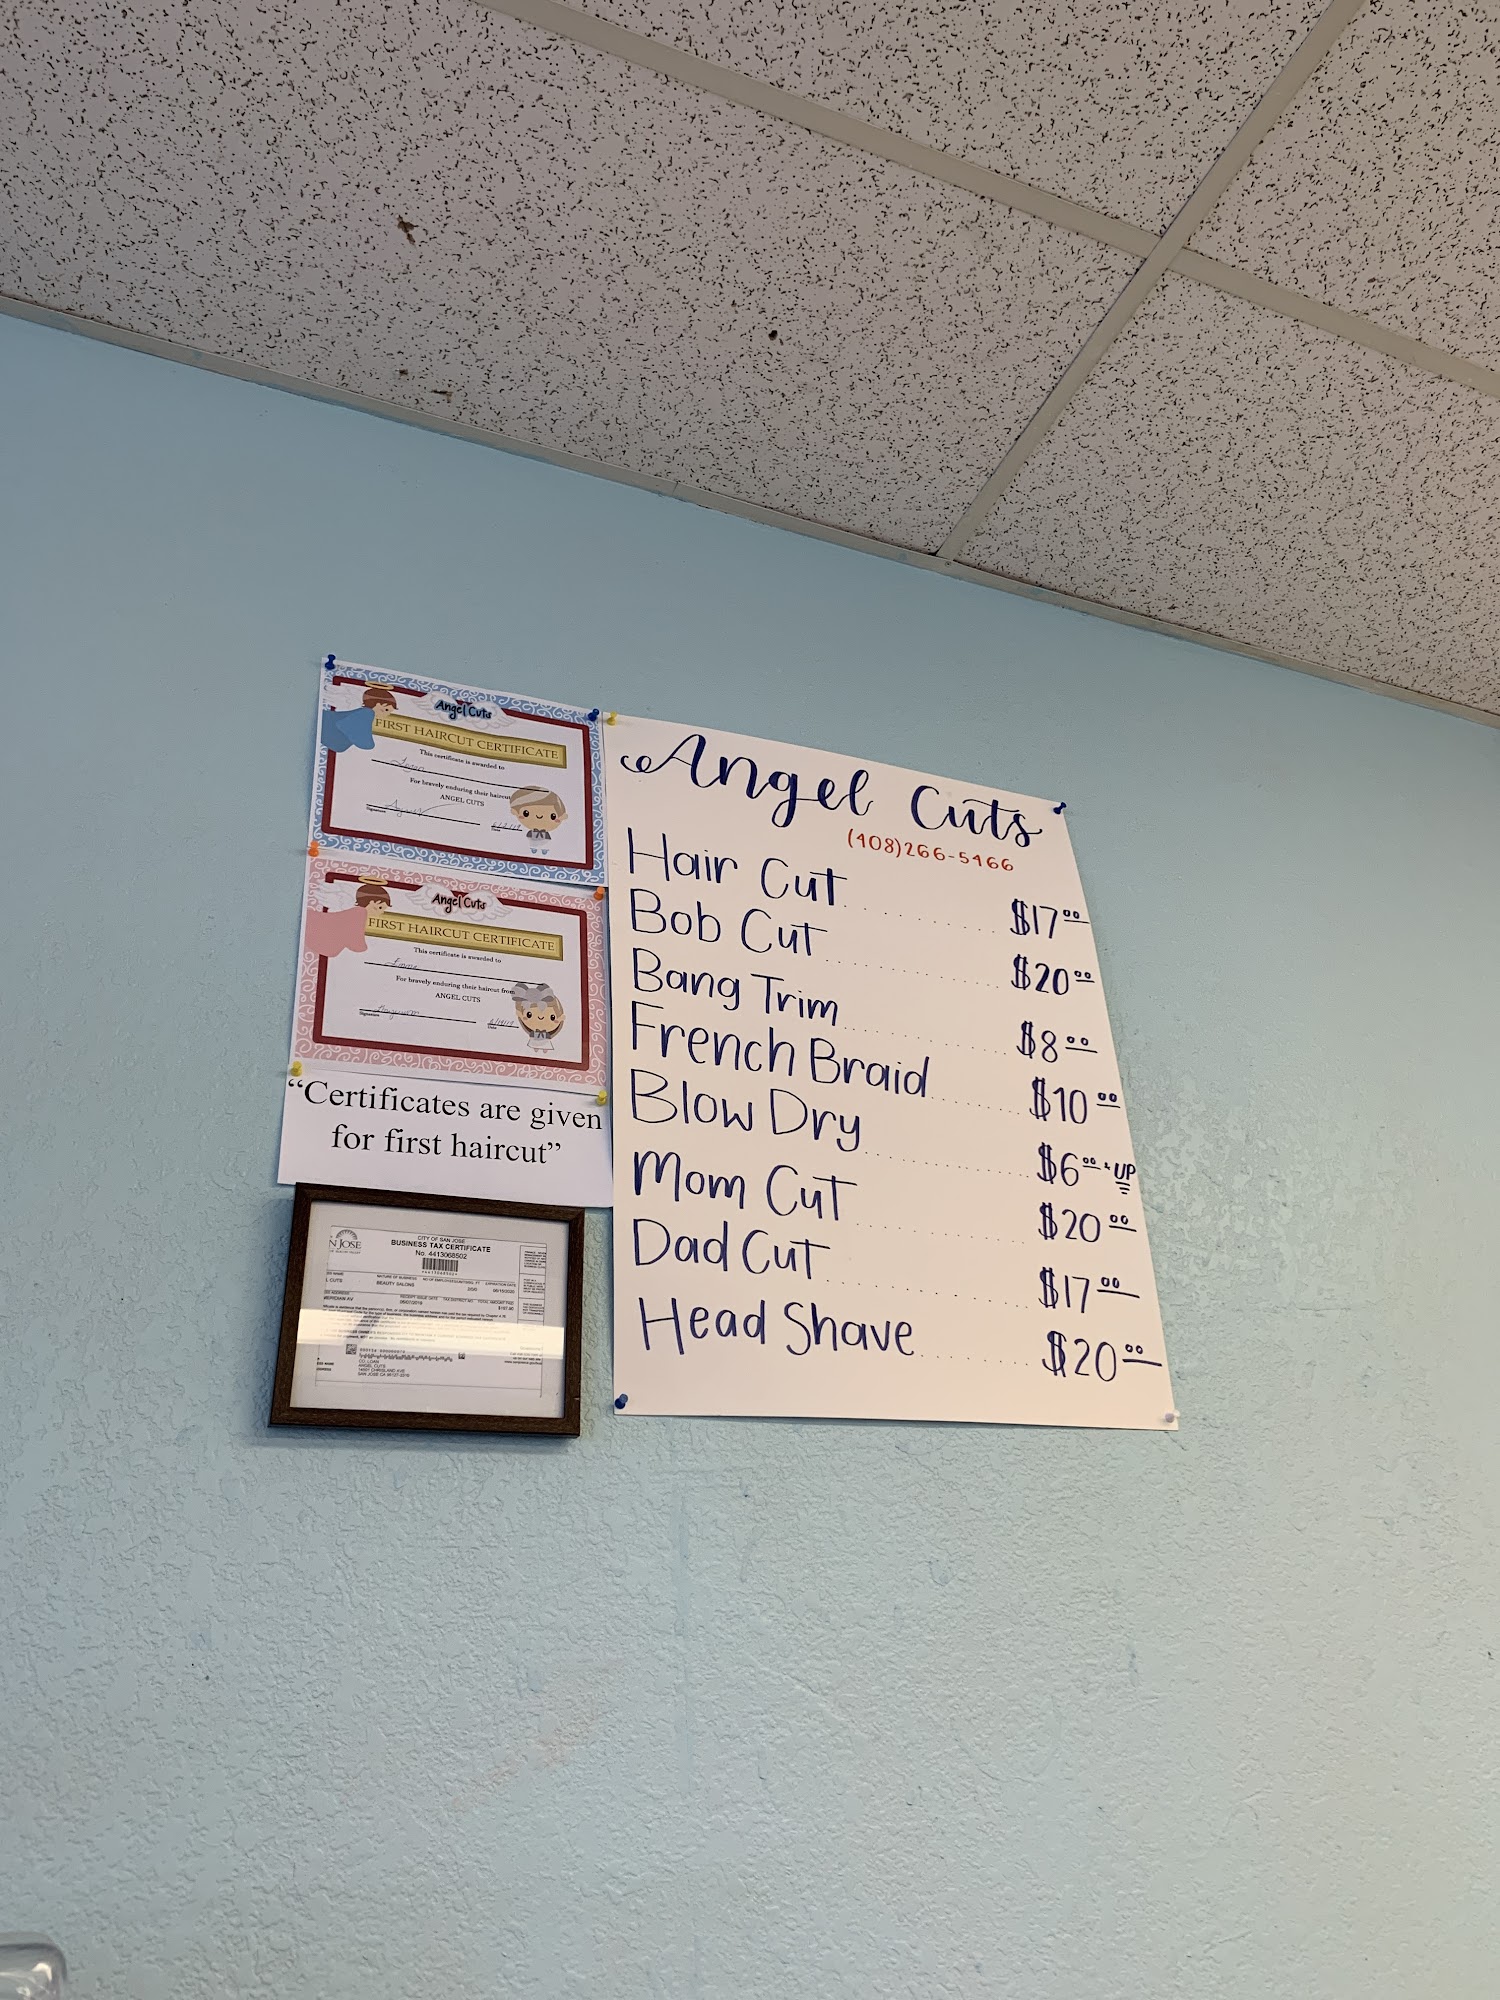 Angel Cuts
FIRST HAIRCUT CERTIFICATE
This certificate is awarded to
For bravely enduring their haircut
ANGEL CUTS
Signature
Date
Angel Cuts
FIRST HAIRCUT CERTIFICATE
This certificate is awarded to
Emma
For bravely enduring their haircut from
ANGEL CUTS
Signature
Date
"Certificates are given
for first haircut"
N JOSE
CITY OF SAN JOSE
BUSINESS TAX CERTIFICATE
No. 4413068502
NATURE OF BUSINESS
EXPIRATION DATE
L CUTS
BEAUTY SALONS
06/15/2020
RECEIPT ISSUE DATE
TOTAL AMOUNT PAID
MERIDIAN AV
06/07/2019
ANGEL CUTS
Angel Cuts
(408)266-5466
Hair Cut $17.00
Bob Cut $20.00
Bang Trim $8.00
French Braid $10.00
Blow Dry $6.00 & UP
Mom Cut $20.00
Dad Cut $17.00
Head Shave $20.00